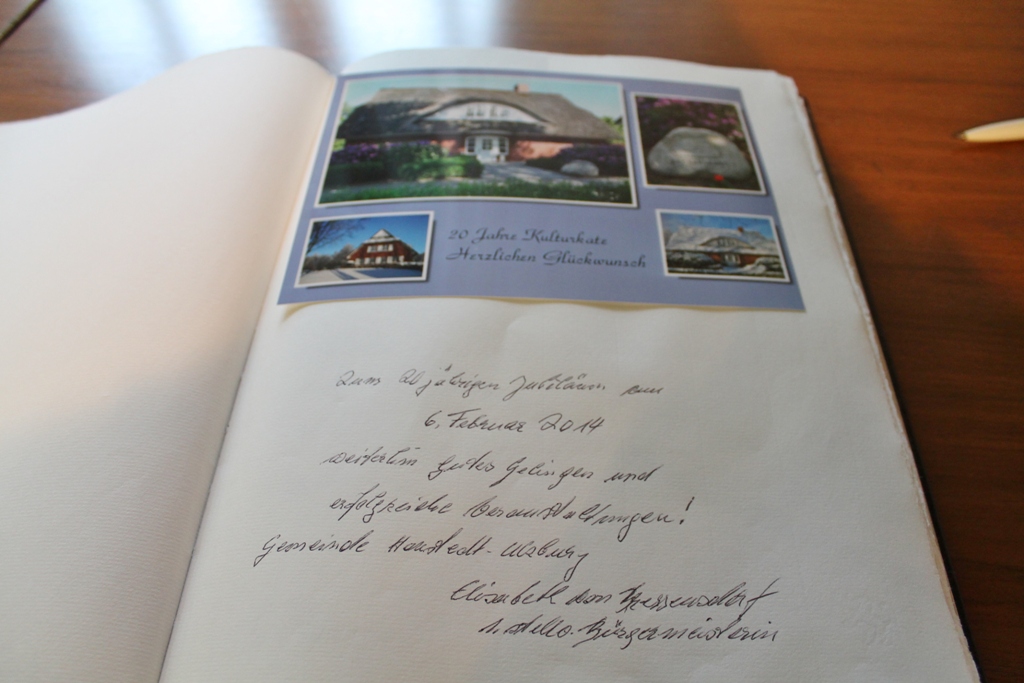 20 Jahre Kulturkate
Herzlichen Glückwunsch
Zum 20 jährigen Jubiläum am
6. Februar 2014
weiterhin gutes Gelingen und
erfolgreiche Veranstaltungen!
Gemeinde Henstedt-Ulzburg
Elisabeth von Bressensdorf
1. stellv. Bürgermeisterin